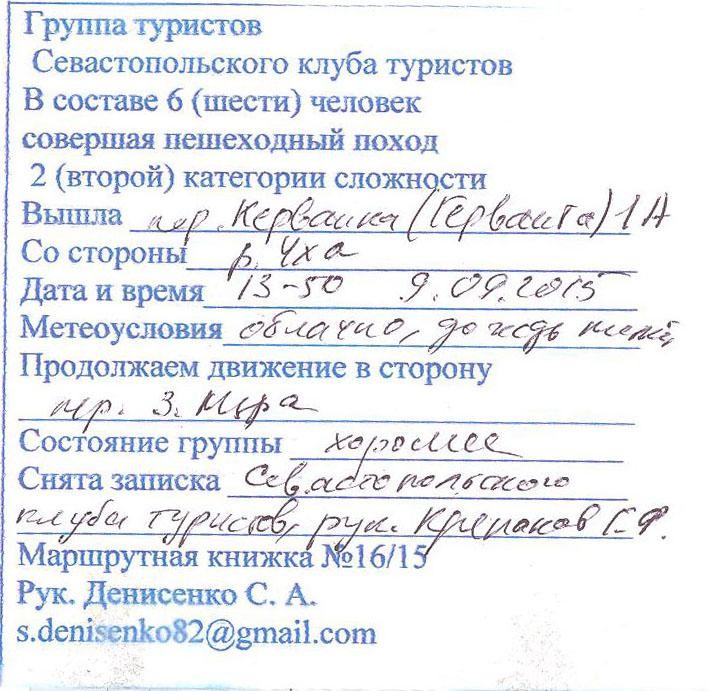 Группа туристов
Севастопольского клуба туристов
В составе 6 (шести) человек
совершая пешеходный поход
2 (второй) категории сложности
Вышла пер. Керванка (Герванта) 1А
Со стороны р. Чха
Дата и время 13-50 9.09.2015
Метеоусловия облачно, дождь
Продолжаем движение в сторону
пер. З. Мцра
Состояние группы хорошее
Снята записка Севастопольского
клуба туристов, рук. Крепаков Г.Ф.
Маршрутная книжка №16/15
Рук. Денисенко С. А.
s.denisenko82@gmail.com